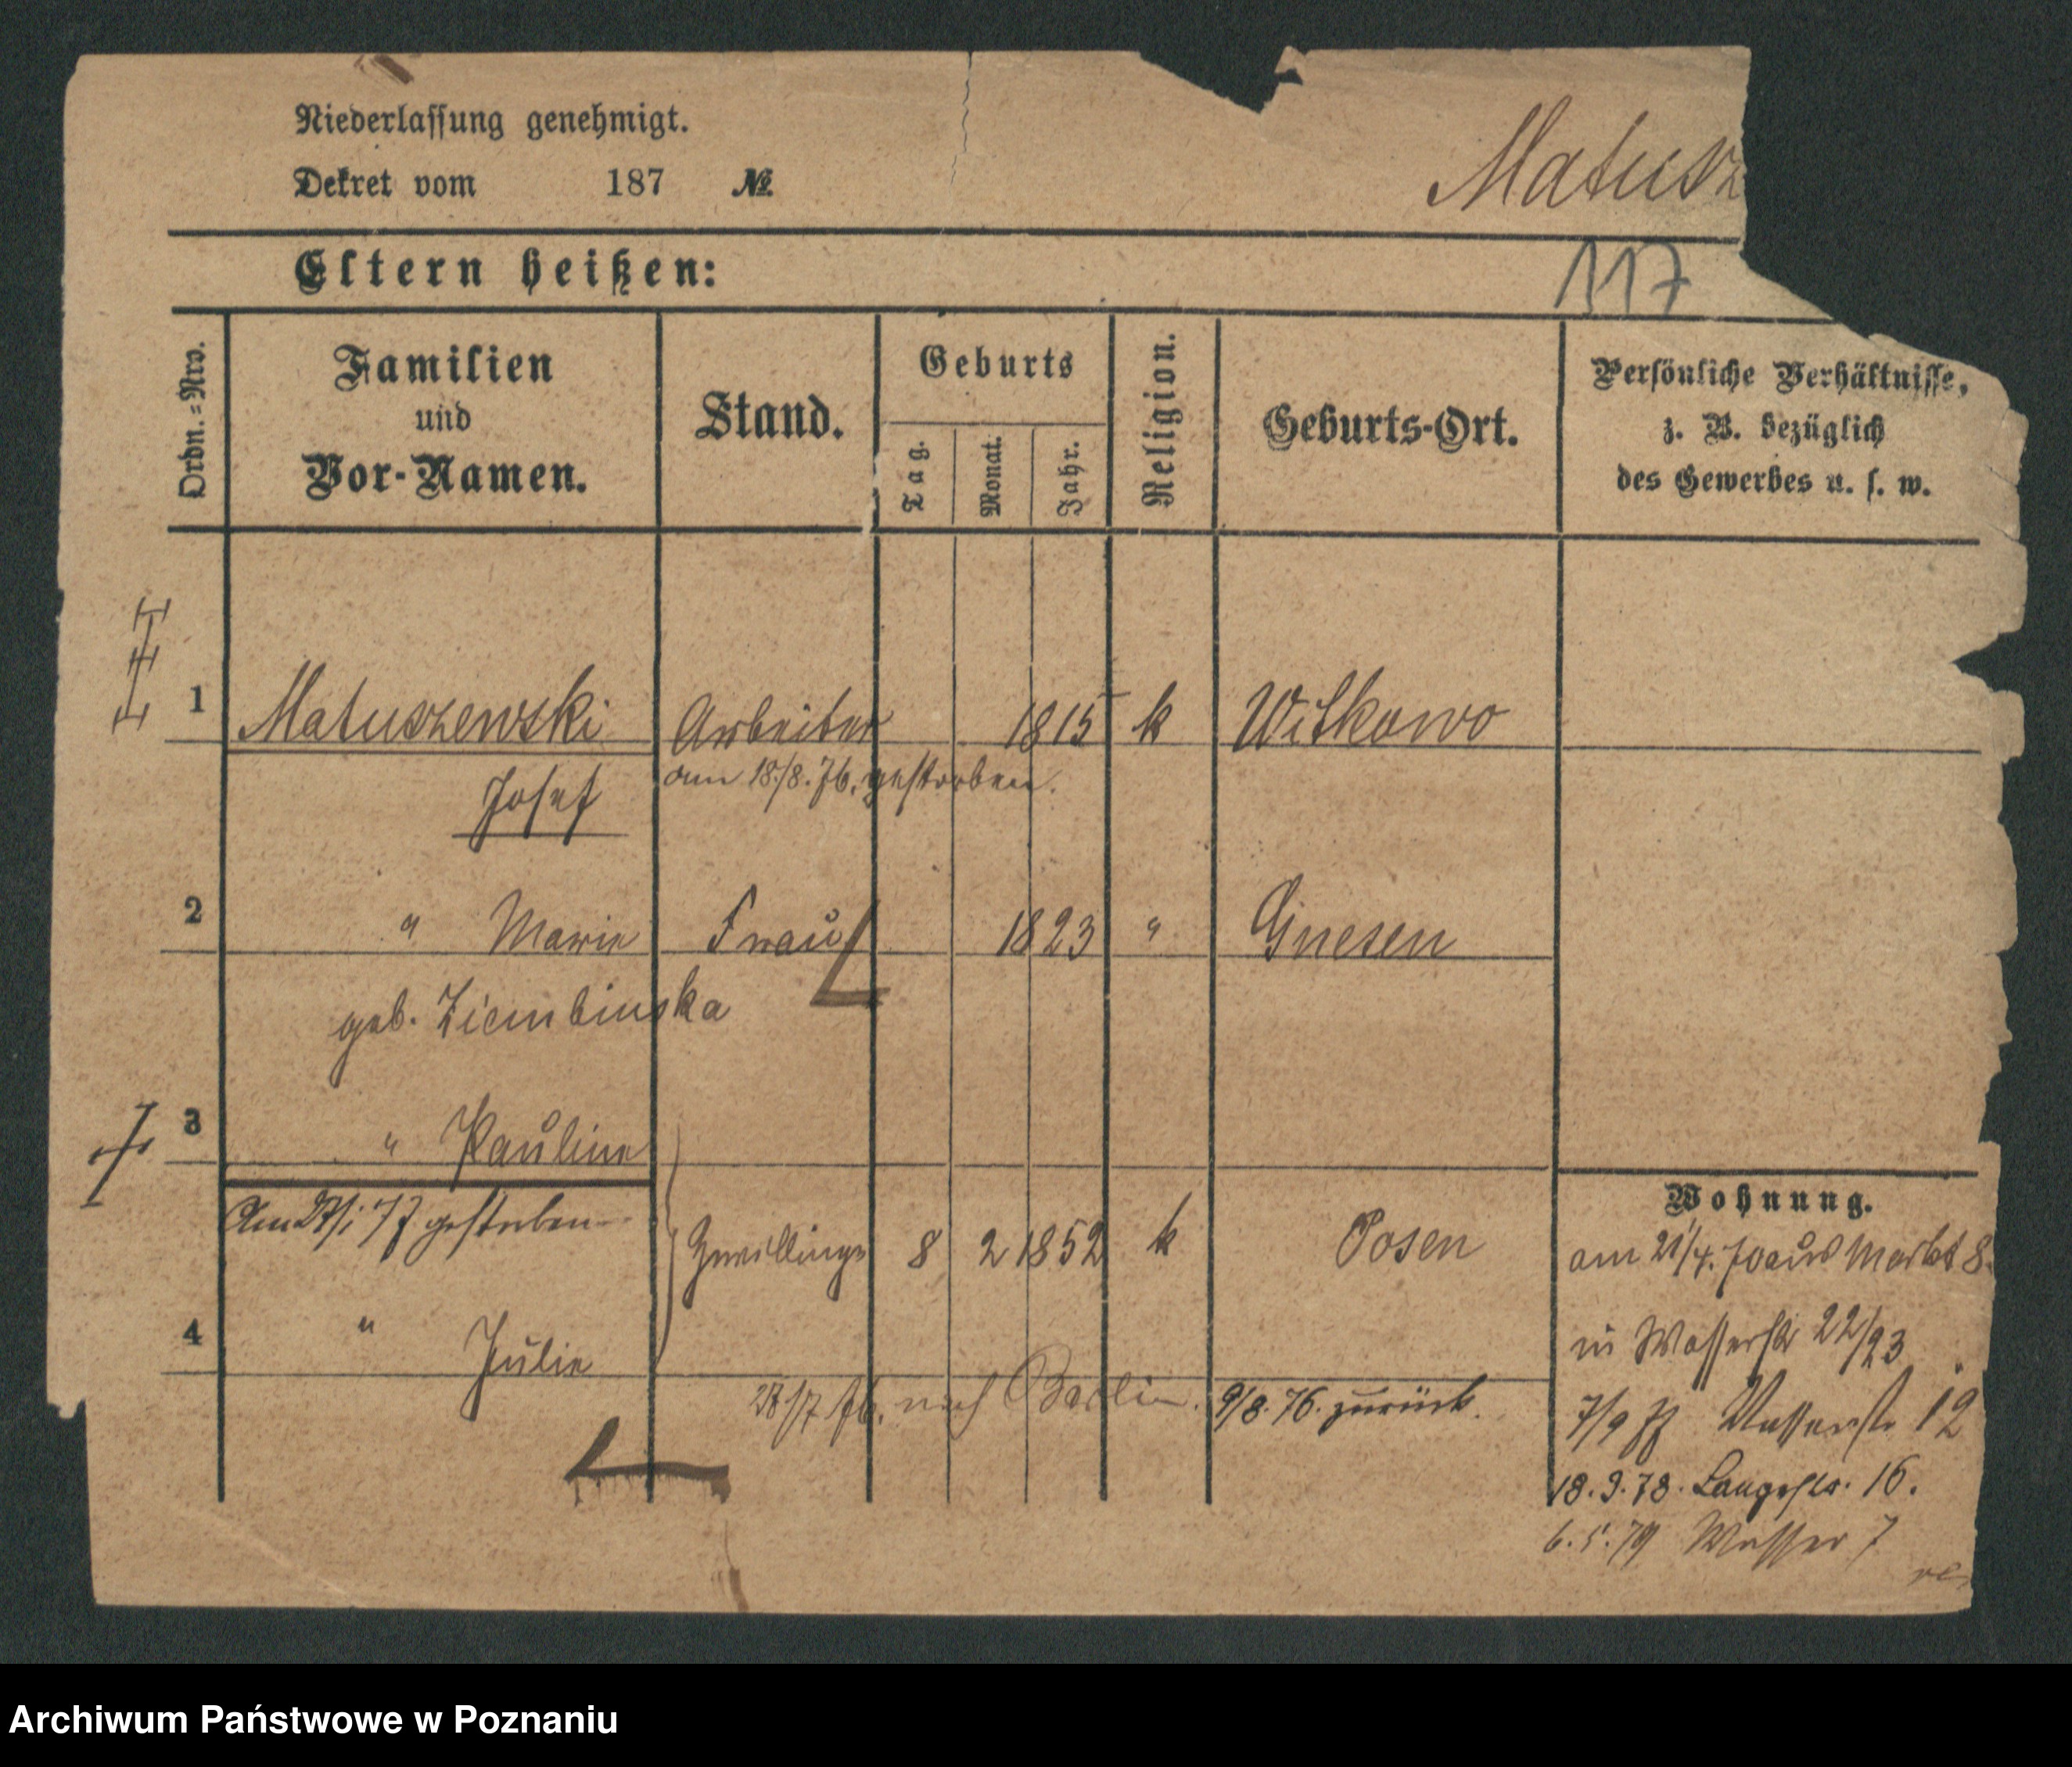 Niederlassung genehmigt.
Dekret vom 187 №
Matusz
Eltern heißen:
117
Ordn.=Nro.
Familien
und
Vor-Namen.
Stand.
Geburts
Tag.
Monat.
Jahr.
Religion.
Geburts-Ort.
Persönliche Verhältnisse,
z. B. bezüglich
des Gewerbes u. s. w.
1 Matuszewski Arbeiter 1815 k Witkowo
Josef am 18./8. 76. gestorben.
2 " Marie Frau 1823 " Gnesen
geb. Ziembinska
3 " Pauline
Am 27/1 77 gestorben
Zwillinge 8 2 1852 k Posen
4 " Julie
28/7 76. nach Berlin. 9/8. 76. zurück.
Wohnung.
am 21/4. 70 aus Markt 8.
in Wasserstr 22/23
7/9 77 Wasserstr 12
18.9.78. Langestr. 16.
6.5.79 Wasser 7
Archiwum Państwowe w Poznaniu